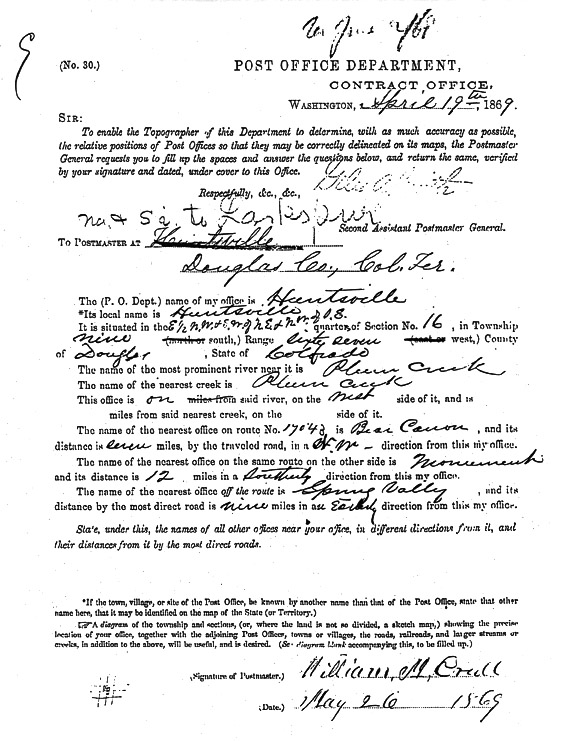 June 2/69
(No. 30.)
POST OFFICE DEPARTMENT,
CONTRACT OFFICE,
WASHINGTON, April 19th, 1869.
SIR:
To enable the Topographer of this Department to determine, with as much accuracy as possible,
the relative positions of Post Offices so that they may be correctly delineated on its maps, the Postmaster
General requests you to fill up the spaces and answer the questions below, and return the same, verified
by your signature and dated, under cover to this Office.
Respectfully, &c., &c.,
Second Assistant Postmaster General.
TO POSTMASTER AT Huntsville
Douglas Co., Col. Ter.
The (P. O. Dept.) name of my office is Huntsville
*Its local name is Huntsville
It is situated in the quarter of Section No. 16, in Township
nine (north or south,) Range sixty seven (east or west,) County
of Douglas, State of Colorado
The name of the most prominent river near it is Plum Creek
The name of the nearest creek is Plum creek
This office is on miles from said river, on the West side of it, and is
miles from said nearest creek, on the side of it.
The name of the nearest office on route No. 17043 is Bear Canon, and its
distance is seven miles, by the traveled road, in a N. W. direction from this my office.
The name of the nearest office on the same route on the other side is Monument
and its distance is 12 miles in a Southerly direction from this my office.
The name of the nearest office off the route is Spring Vally, and its
distance by the most direct road is nine miles in an Easterly direction from this my office.
State, under this, the names of all other offices near your office, in different directions from it, and
their distances from it by the most direct roads.
*If the town, village, or site of the Post Office, be known by another name than that of the Post Office, state that other
name here, that it may be identified on the map of the State (or Territory.)
☞A diagram of the township and sections, (or, where the land is not so divided, a sketch map,) showing the precise
location of your office, together with the adjoining Post Offices, towns or villages, the roads, railroads, and larger streams or
creeks, in addition to the above, will be useful, and is desired. (See diagram blank accompanying this, to be filled up.)
(Signature of Postmaster.) William M. Crull
(Date.) May 26 1869